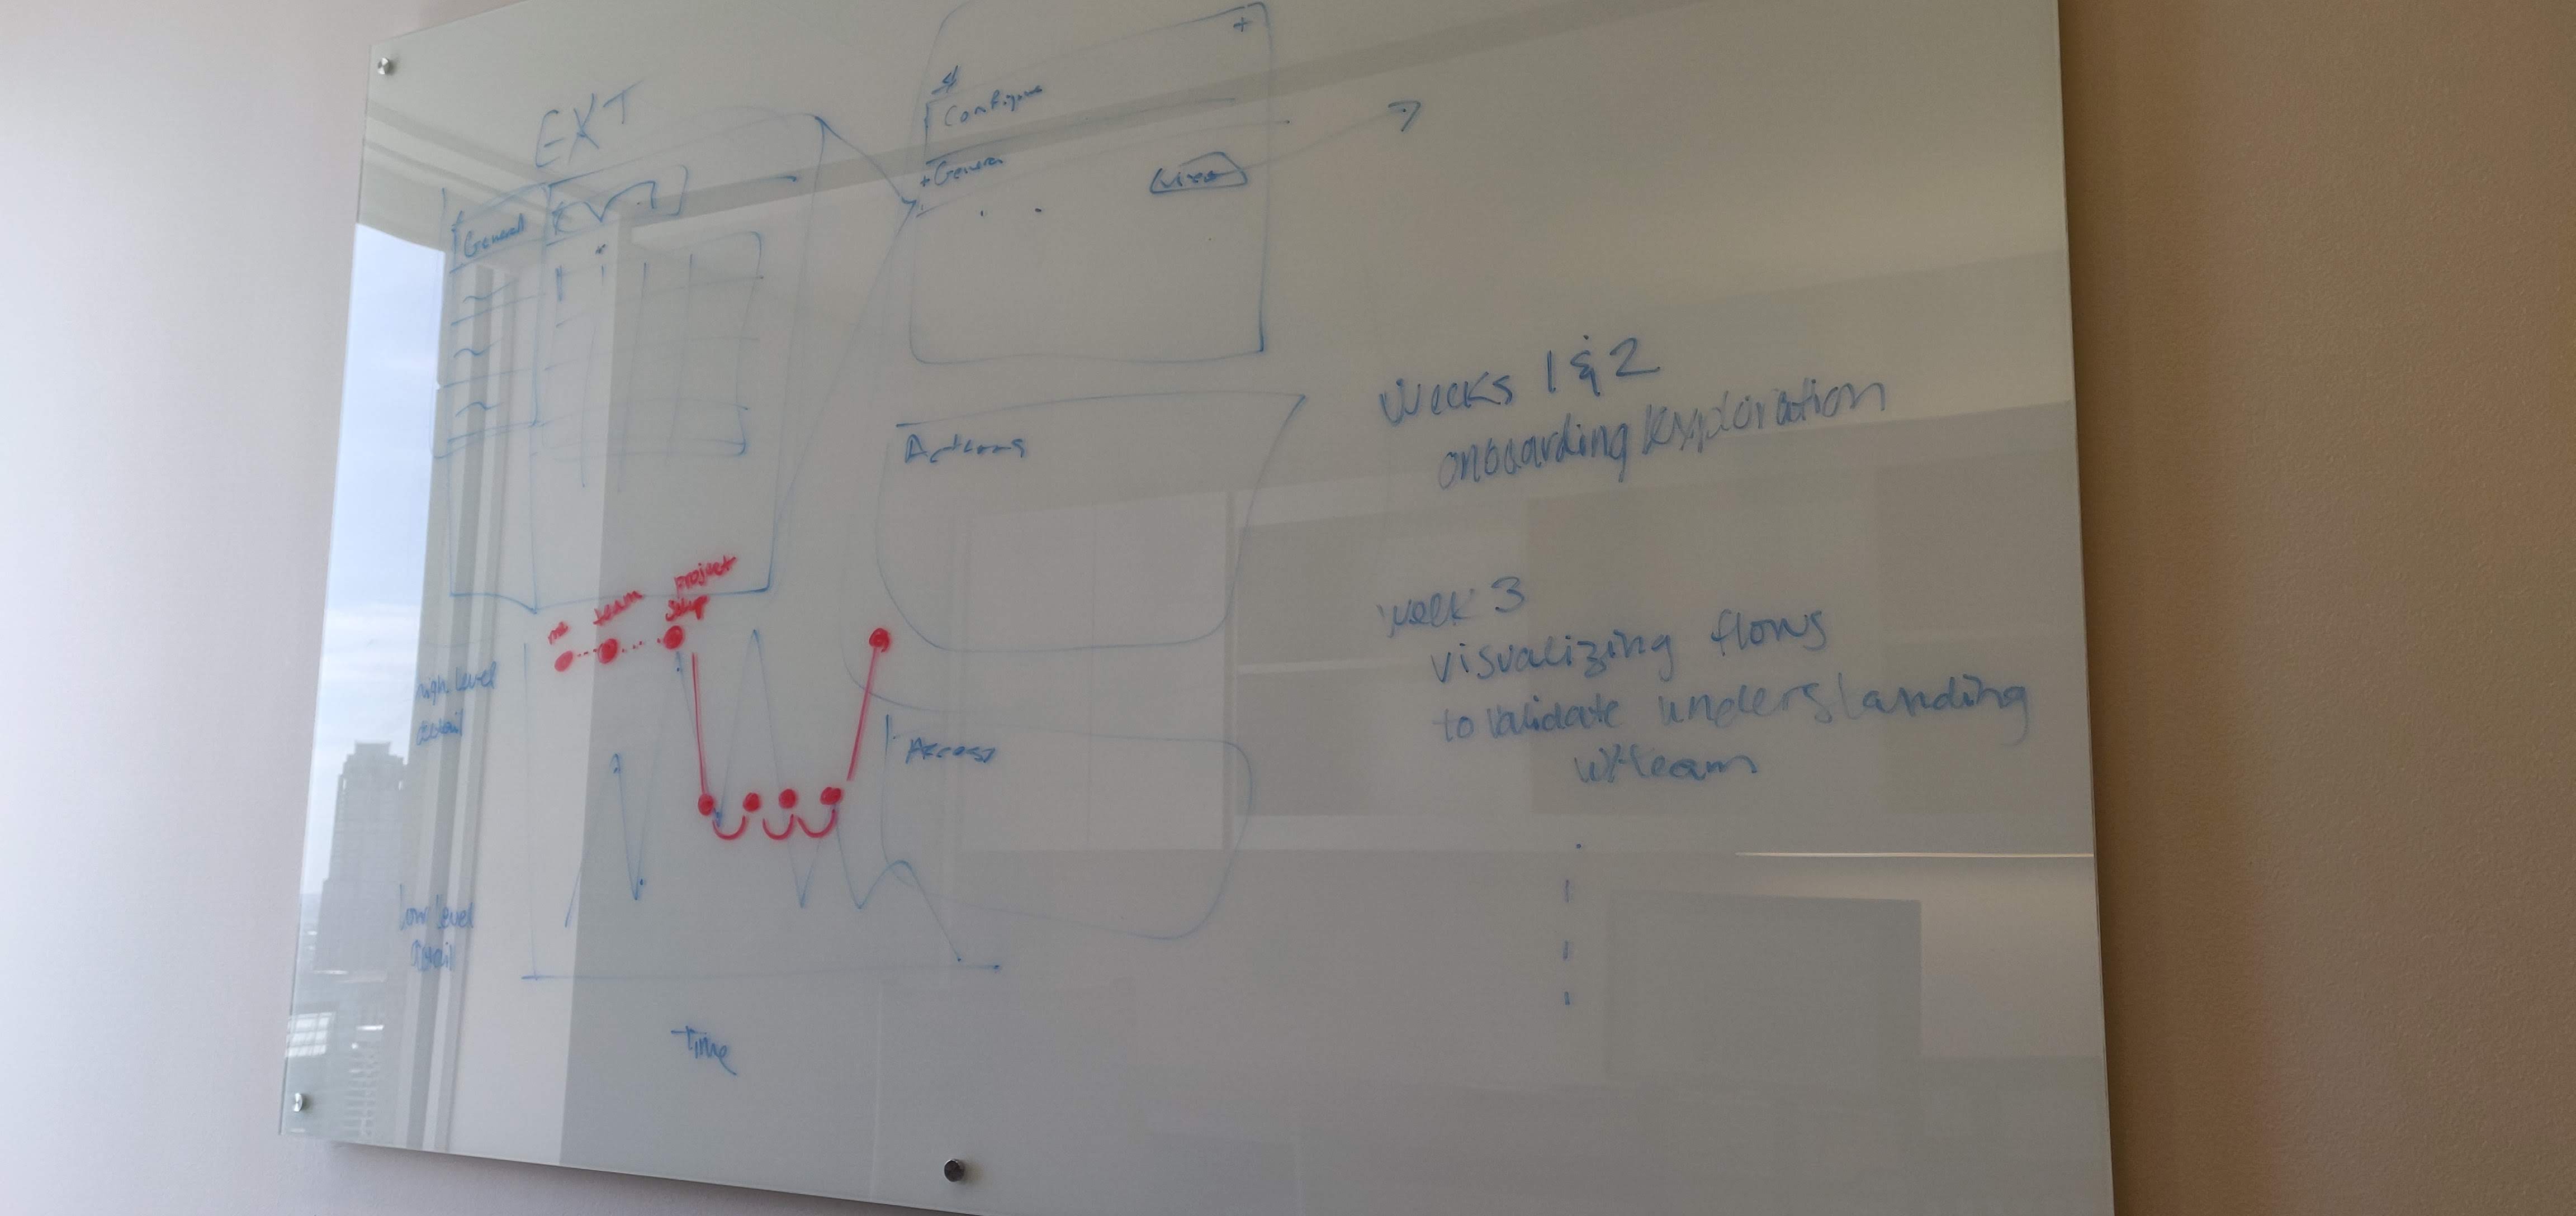 EXT
General
+
Configure
+General
View
Actions
Access
me
team
project
setup
high level
detail
low level
detail
Time
Weeks 1 & 2
onboarding/exploration
week 3
visualizing flows
to validate understanding
w/team